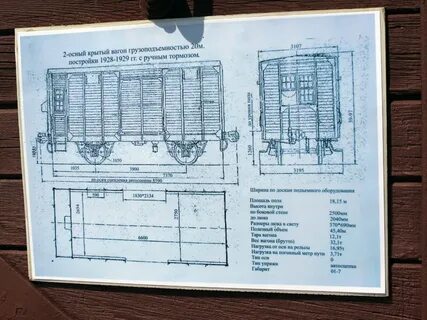 2-осный крытый вагон грузоподъемностью 20т.
постройки 1928-1929 гг. с ручным тормозом.
3107
1050
1035
3900
7370
по осям сцепления автосцепки 8700
3195
1830*2134
2654
2750
6600
Ширина по доскам подъемного оборудования
Площадь пола 18,15 м
Высота внутри
по боковой стене 2500мм
до люка 2040мм
Размеры люка в свету 370*690мм
Полезный объем 45,40м
Тара вагона 12,1т
Вес вагона (брутто) 32,1т
Нагрузка от оси на рельсы 16,05т
Нагрузка на погонный метр пути 3,71т
Тип оси
Тип упряжи автосцепка
Габарит 01-Т